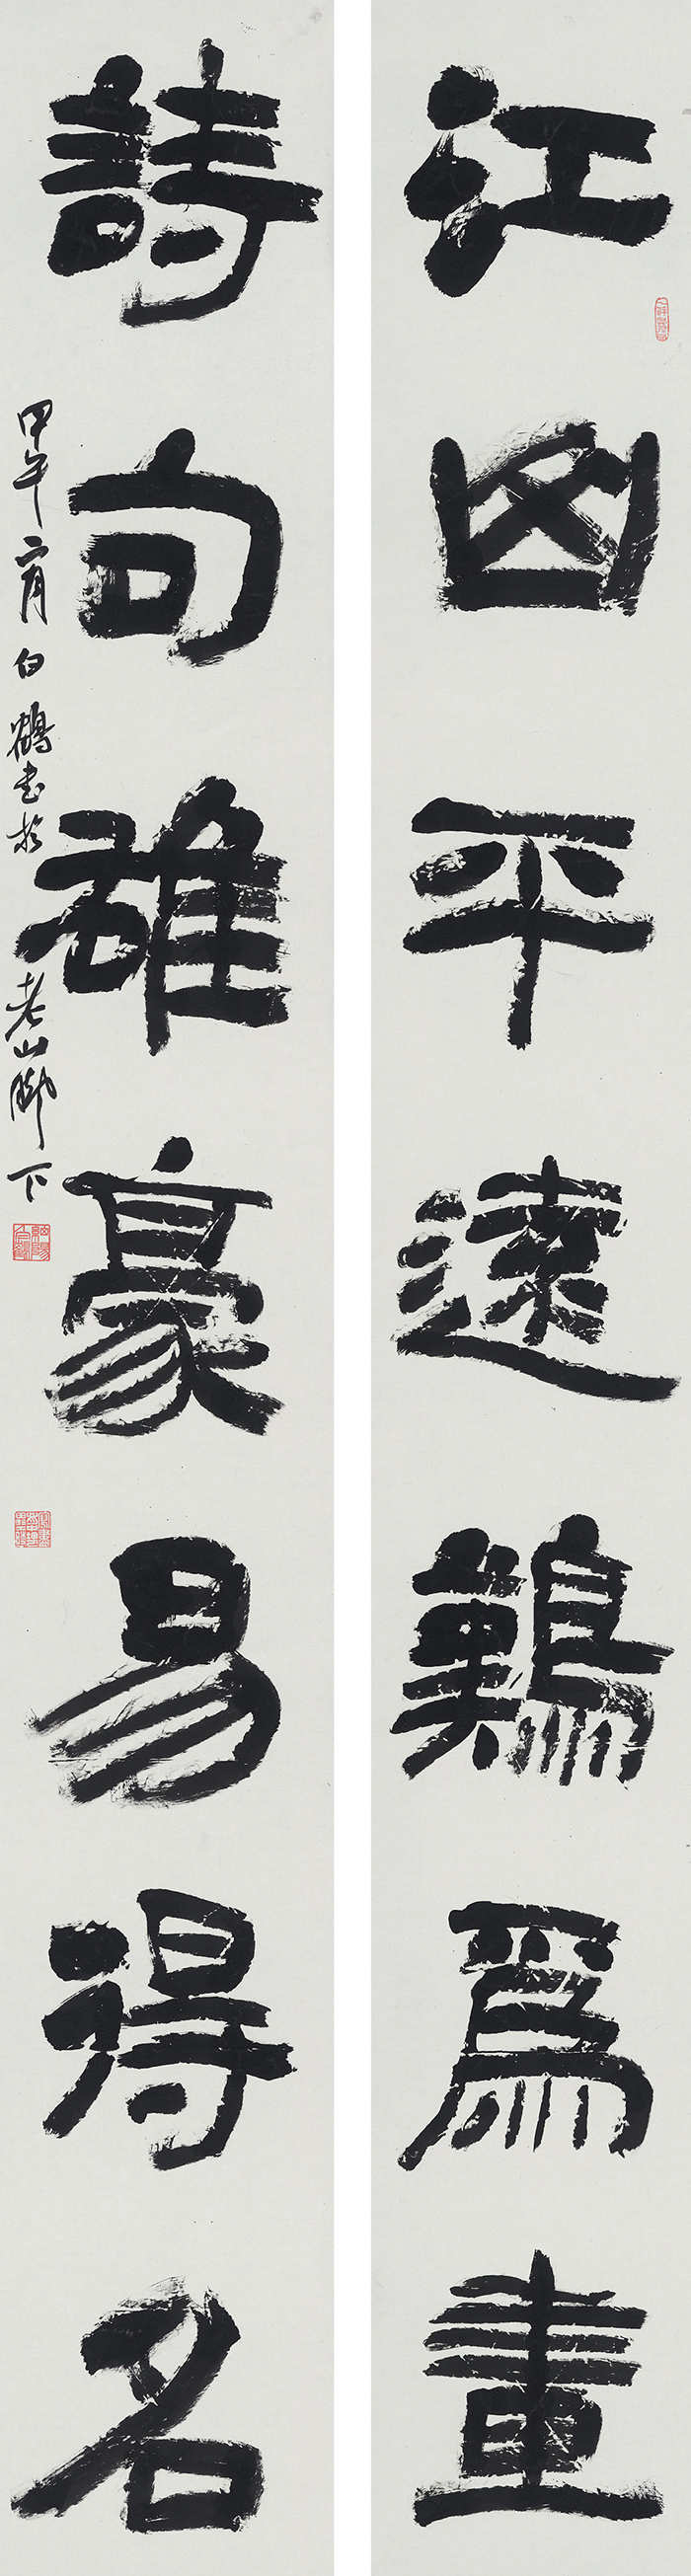 江山平遠難爲畫
詩句雄豪易得名
甲午二月白鶴書於老山腳下